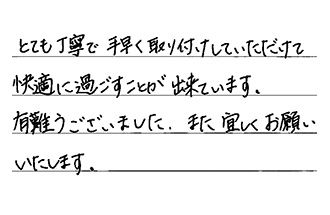 とても丁寧で手早く取り付けしていただけて
快適に過ごすことが出来ています。
有難うございました。また宜しくお願い
いたします。